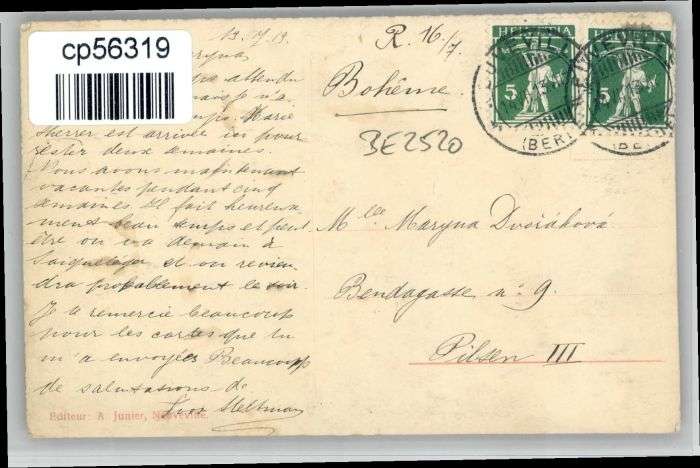 cp56319
13. VII. 13.
attendu
n'a
Marie
Scherrer est arrivée ici pour
rester deux semaines.
Nous avons maintenant
vacances pendant cinq
semaines. Il fait heureux-
ment beau temps et peut
être on va demain à
Saignelégier et on revien
dra probablement le soir.
Je te remercie beaucoup
pour les cartes que tu
m'a envoyées Beaucoup
de salutations de
Editeur: A Junier, Neuveville.
R. 16/7.
Bohême.
BE2520
HELVETIA HELVETIA
5 5
(BERN)
Mlle Maryna Dvořáková
Bendagasse nº 9.
Pilsen III